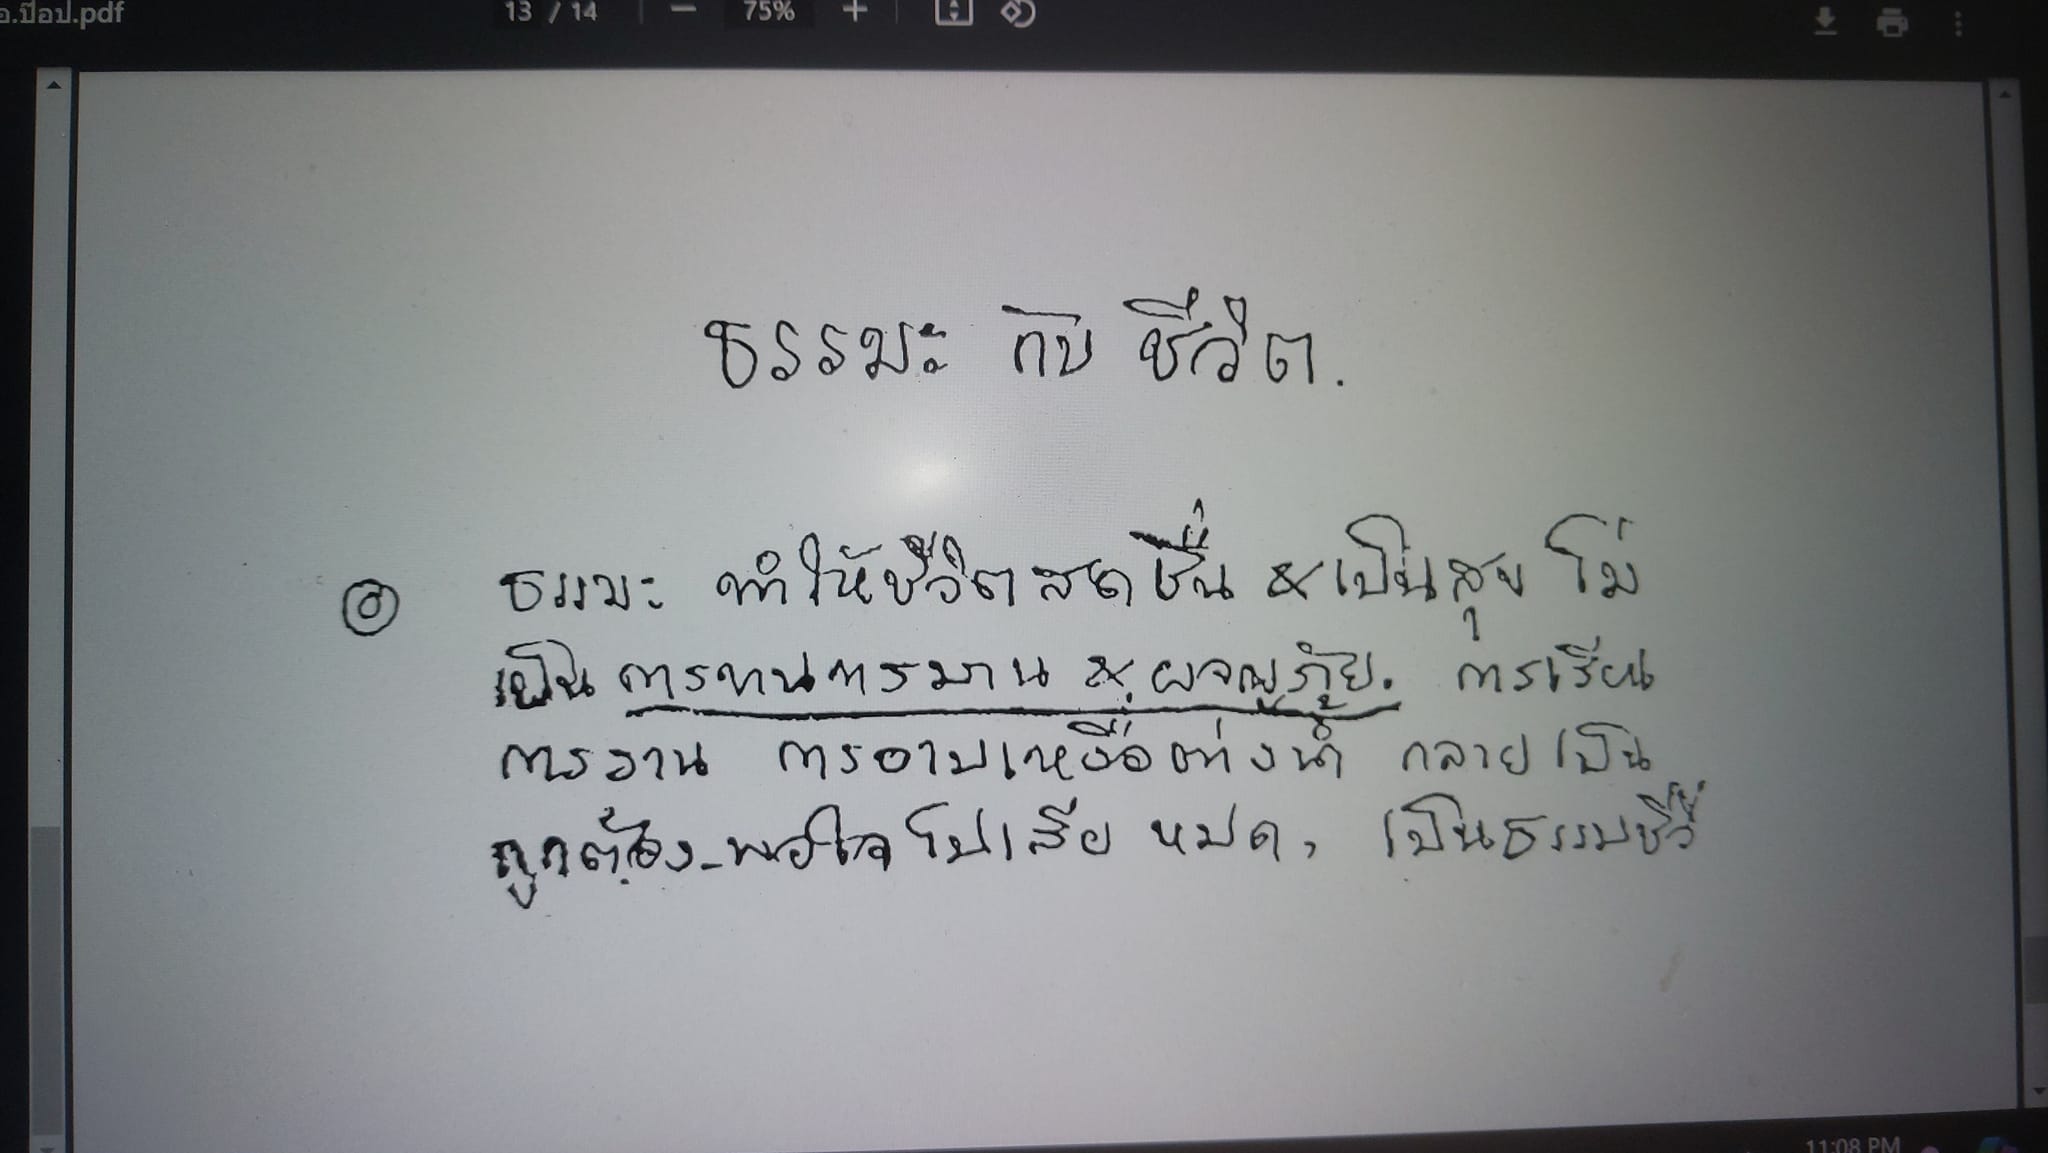 อ.ป๊อป.pdf
13 / 14
75%
ธรรมะ กับ ชีวิต.
๏ ธรรมะ ทำให้ชีวิตสดชื่น & เป็นสุข ไม่
เป็น การทนทรมาน & ผจญภัย. การเรียน
การงาน การอาบเหงื่อต่างน้ำ กลายเป็น
ถูกต้อง-พอใจ ไปเสีย หมด, เป็นธรรมชีวี
11:08 PM